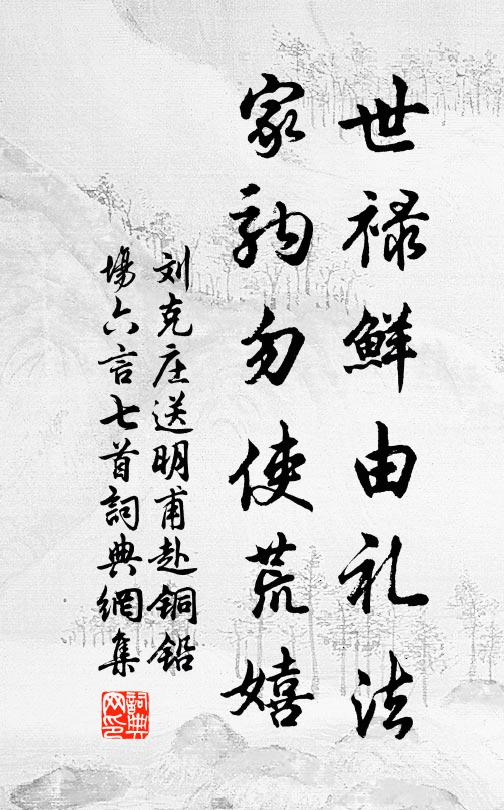 世禄鮮由礼法
家訓勿使荒嬉
刘克庄送明甫赴铜铅
場六言七首詞典網集
詞典网印